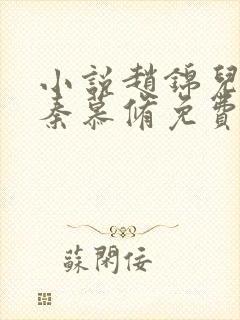 小說趙錦兒
秦慕脩免費
蘇閑佞